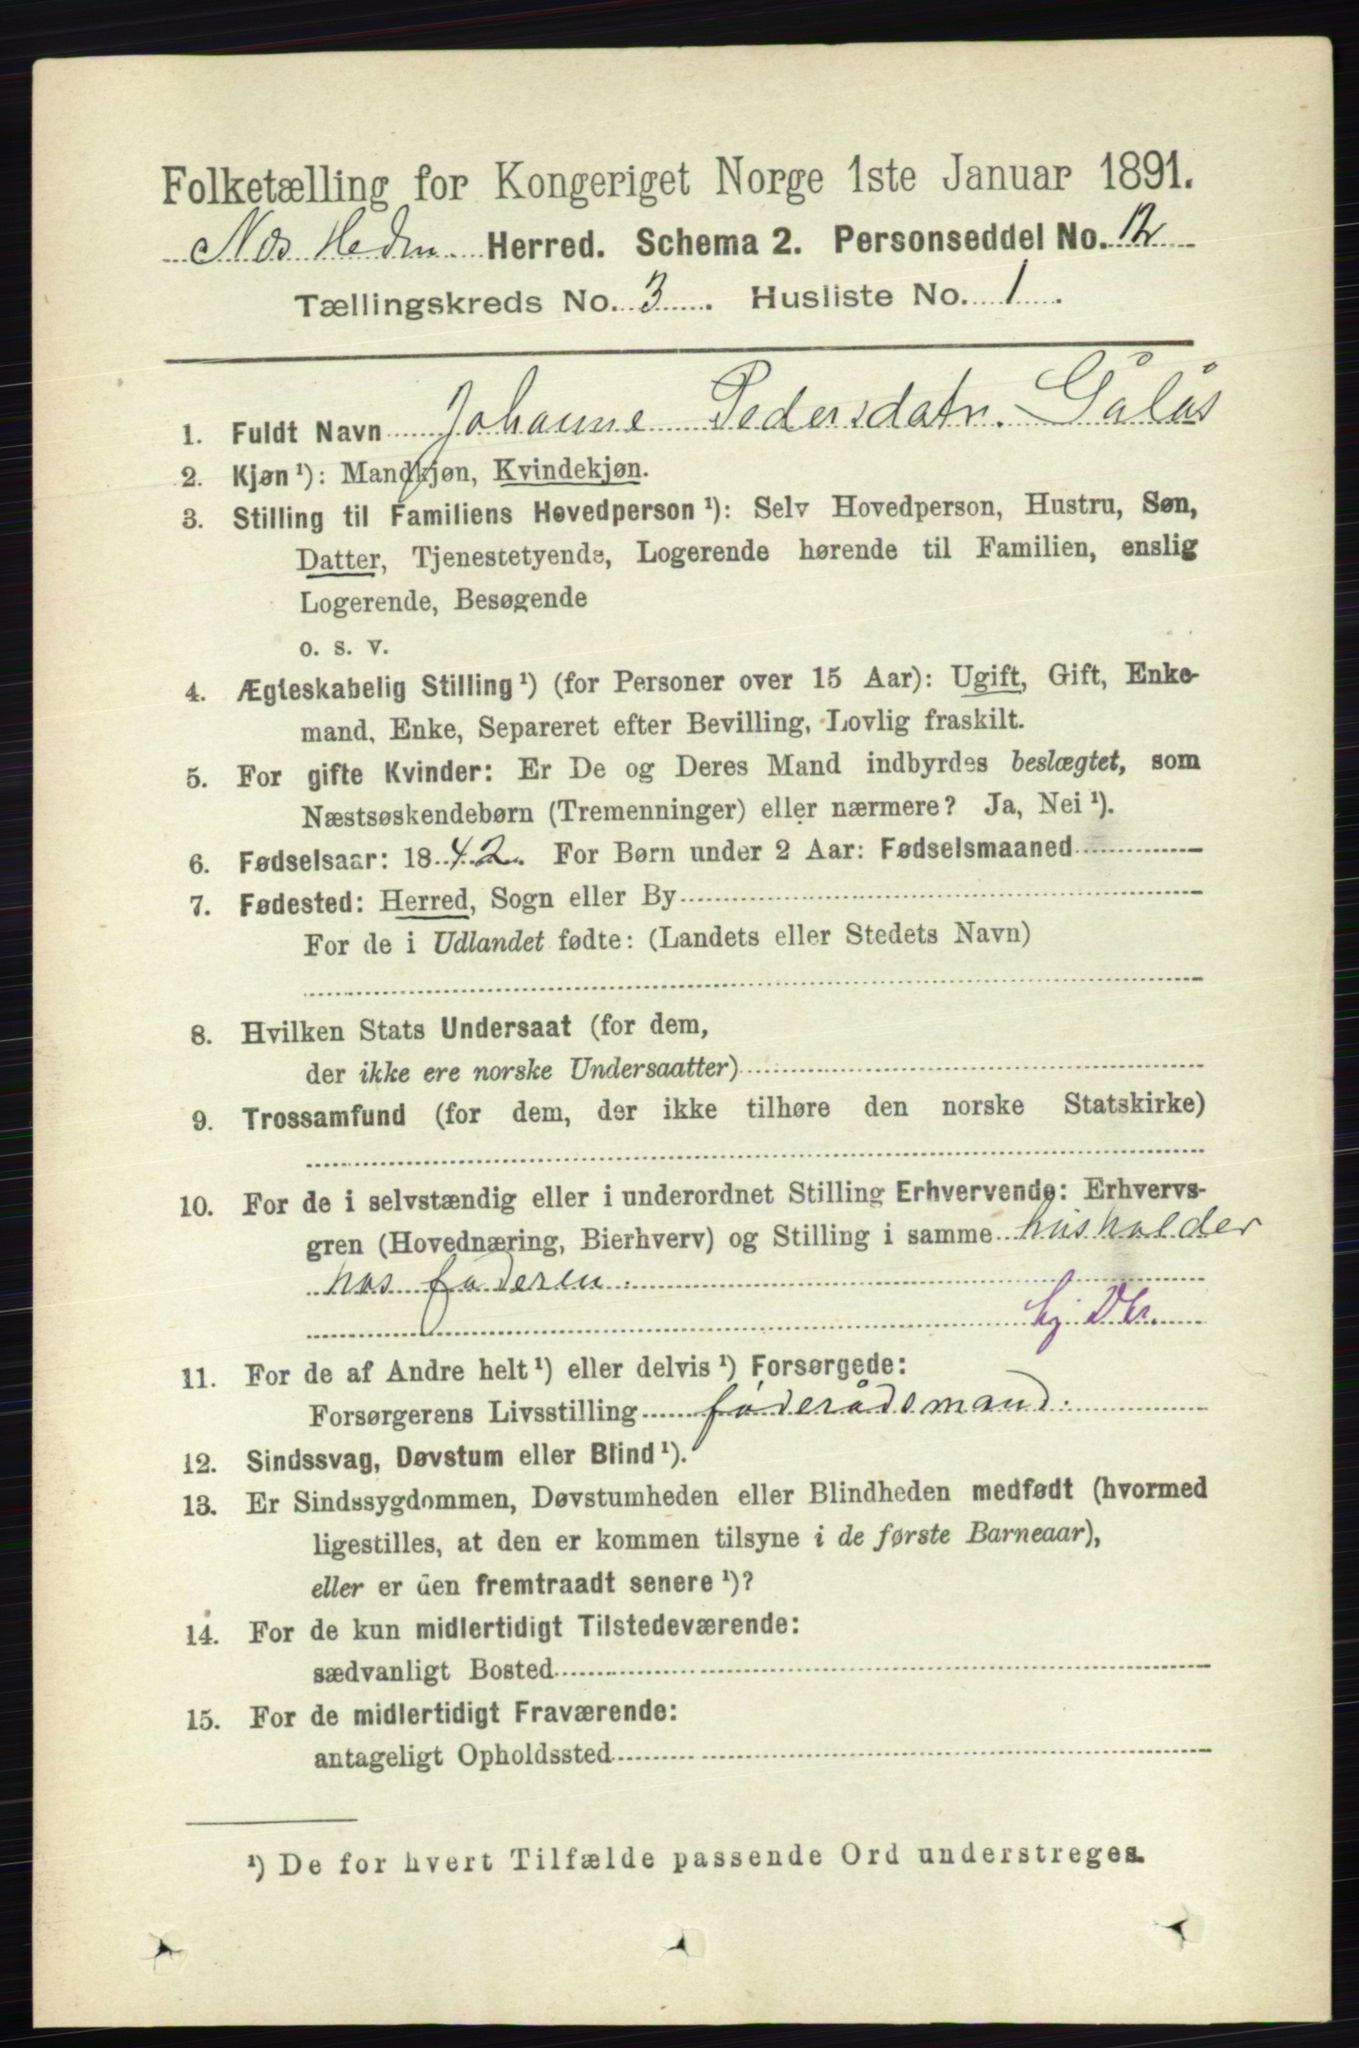 Folketælling for Kongeriget Norge 1ste Januar 1891.
Nes Hedm. Herred. Schema 2. Personseddel No. 12
Tællingskreds No. 3. Husliste No. 1.
1. Fuldt Navn Johanne Pedersdatr. Gålås
2. Kjøn¹): Mandkjøn, Kvindekjøn.
3. Stilling til Familiens Hovedperson¹): Selv Hovedperson, Hustru, Søn,
Datter, Tjenestetyende, Logerende hørende til Familien, enslig
Logerende, Besøgende
o. s. v.
4. Ægteskabelig Stilling¹) (for Personer over 15 Aar): Ugift, Gift, Enke-
mand, Enke, Separeret efter Bevilling, Lovlig fraskilt.
5. For gifte Kvinder: Er De og Deres Mand indbyrdes beslægtet, som
Næstsøskendebørn (Tremenninger) eller nærmere? Ja, Nei¹).
6. Fødselsaar: 1842. For Børn under 2 Aar: Fødselsmaaned
7. Fødested: Herred, Sogn eller By
For de i Udlandet fødte: (Landets eller Stedets Navn)
8. Hvilken Stats Undersaat (for dem,
der ikke ere norske Undersaatter)
9. Trossamfund (for dem, der ikke tilhøre den norske Statskirke)
10. For de i selvstændig eller i underordnet Stilling Erhvervende: Erhvervs-
gren (Hovednæring, Bierhverv) og Stilling i samme husholder
hos faderen.
hj Dtr.
11. For de af Andre helt¹) eller delvis¹) Forsørgede:
Forsørgerens Livsstilling føderådsmand.
12. Sindssvag, Døvstum eller Blind¹).
13. Er Sindssygdommen, Døvstumheden eller Blindheden medfødt (hvormed
ligestilles, at den er kommen tilsyne i de første Barneaar),
eller er den fremtraadt senere¹)?
14. For de kun midlertidigt Tilstedeværende:
sædvanligt Bosted
15. For de midlertidigt Fraværende:
antageligt Opholdssted
¹) De for hvert Tilfælde passende Ord understreges.